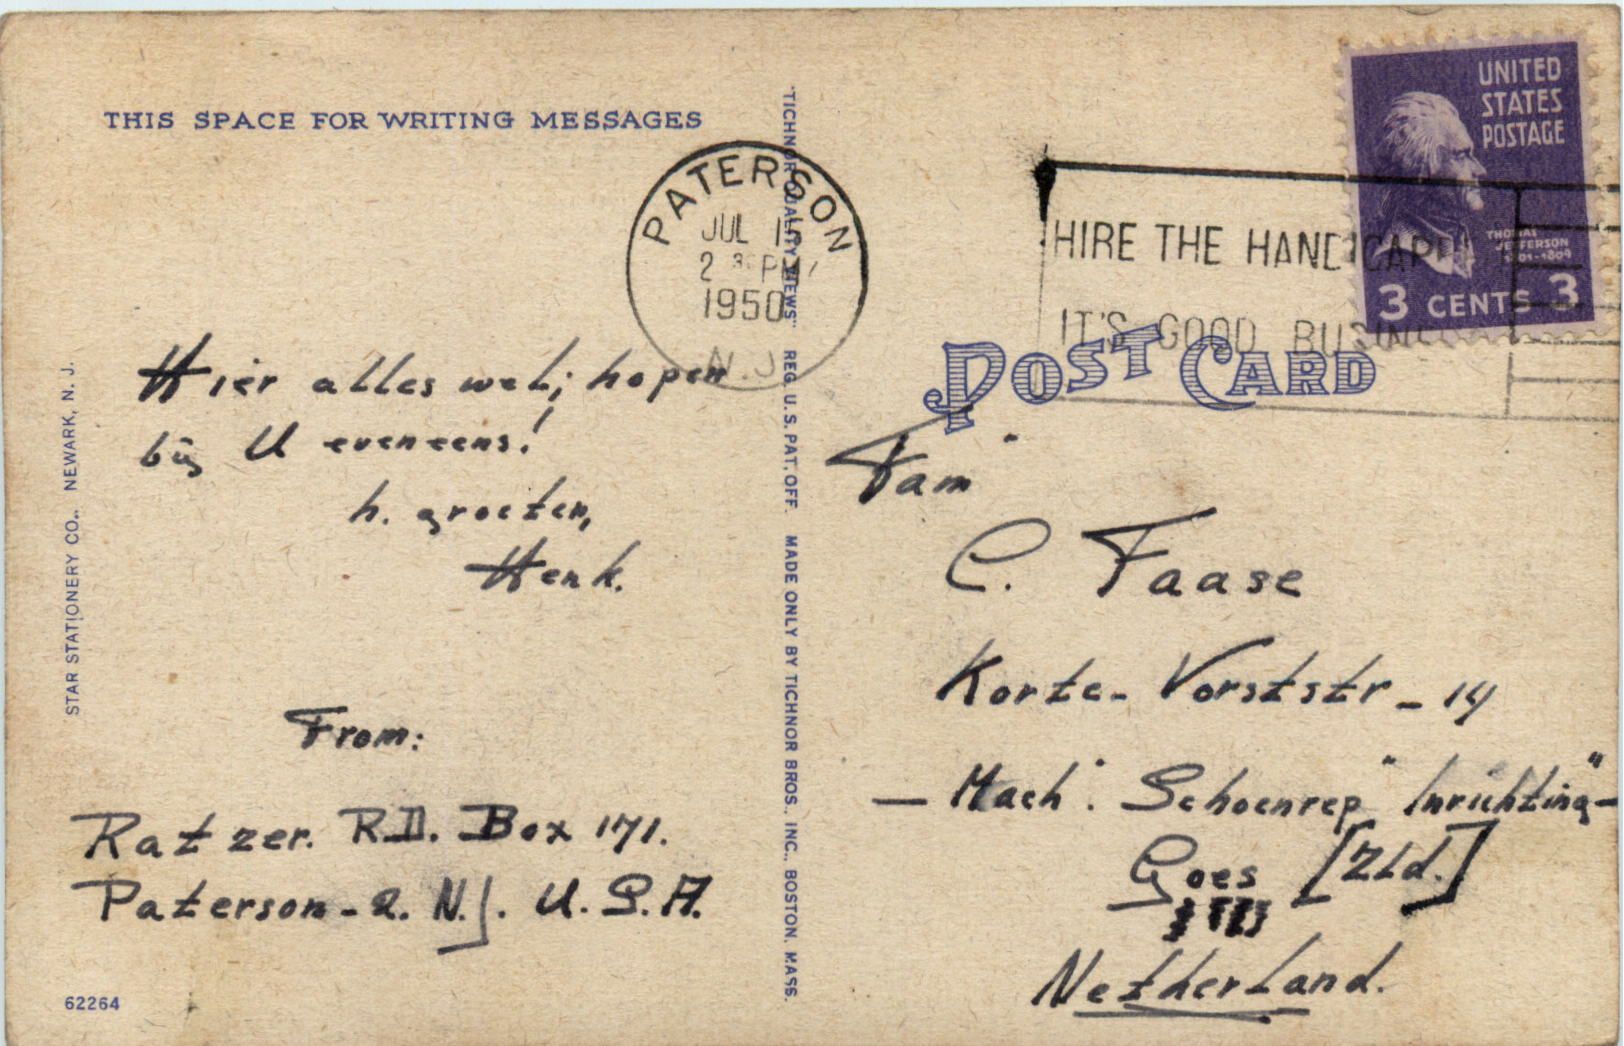 THIS SPACE FOR WRITING MESSAGES
PATERSON
JUL 15
2 30 PM
1950
N.J.
HIRE THE HANDICAPP
IT'S GOOD BUSINE
UNITED
STATES
POSTAGE
THOMAS
JEFFERSON
1801-1809
3 CENTS 3
POST CARD
Hier alles wel; hopen
bij U eveneens!
h. groeten,
Henk.
From:
Ratzer. R.D. Box 171.
Paterson-2. N.J. U.S.A.
Fam"
C. Faase
Korte-Vorststr - 14
- Mach". Schoenrep "Inrichting" -
Goes [Zld.]
Netherland.
STAR STATIONERY CO., NEWARK, N. J.
62264
"TICHNOR QUALITY VIEWS" REG. U.S. PAT. OFF. MADE ONLY BY TICHNOR BROS. INC., BOSTON, MASS.